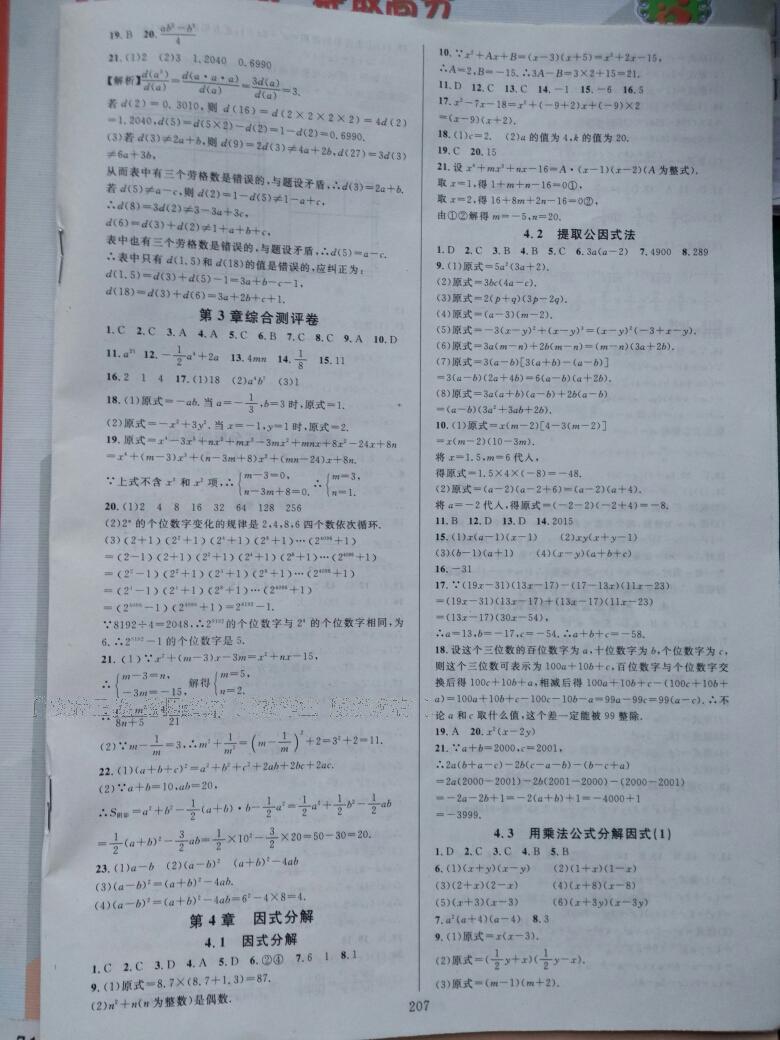 提取高分
19. B 20. (ab²−b³)/4
21. (1)2 (2)3 1.2040 0.6990
【解析】d(a³)/d(a)=d(a·a·a)/d(a)=3d(a)/d(a)=3.
若 d(2)=0.3010,则 d(16)=d(2×2×2×2)=4d(2)
=1.2040,d(5)=d(5×2)−d(2)=1−d(2)=0.6990.
(3)若 d(3)≠2a+b,则 d(9)=2d(3)≠4a+2b,d(27)=3d(3)
≠6a+3b,
从而表中有三个劳格数是错误的,与题设矛盾,∴d(3)=2a+b.
若 d(5)≠a−c,则 d(2)=1−d(5)≠1−a+c,
∴d(8)=3d(2)≠3−3a+3c,
d(6)=d(3)+d(2)≠1+a+b+c,
表中也有三个劳格数是错误的,与题设矛盾,∴d(5)=a−c.
∴表中只有 d(1.5)和 d(18)的值是错误的,应纠正为:
d(1.5)=d(3)+d(5)−1=3a+b−c−1,
d(18)=d(3)+d(6)=3a+2b+c+1.
第 3 章综合测评卷
1. C 2. C 3. A 4. A 5. C 6. B 7. C 8. C 9. A 10. D
11. a²¹ 12. −1/2a⁴+2a 13. 4mn 14. 1/8 15. 11
16. 2 1 4 17. (1)18 (2)a⁴b⁷ (3)1
18. (1)原式=−ab. 当 a=−1/3,b=3 时,原式=1.
(2)原式=−x²+3y². 当 x=−1,y=1 时,原式=2.
19. 原式=x⁴−3x³+nx²+mx³−3mx²+mnx+8x²−24x+8n
=x⁴+(m−3)x³+(n−3m+8)x²+(mn−24)x+8n.
∵上式不含 x³ 和 x² 项,∴{m−3=0, n−3m+8=0. ∴{m=3, n=1.
20. (1)2 4 8 16 32 64 128 256
(2)2ⁿ 的个位数字变化的规律是 2,4,8,6 四个数依次循环.
(3)(2+1)(2²+1)(2⁴+1)(2⁸+1)⋯(2⁴⁰⁹⁶+1)
=(2−1)(2+1)(2²+1)(2⁴+1)(2⁸+1)⋯(2⁴⁰⁹⁶+1)
=(2²−1)(2²+1)(2⁴+1)(2⁸+1)⋯(2⁴⁰⁹⁶+1)
=(2⁴−1)(2⁴+1)(2⁸+1)⋯(2⁴⁰⁹⁶+1)
=(2⁴⁰⁹⁶−1)(2⁴⁰⁹⁶+1)=2⁸¹⁹²−1.
∵8192÷4=2048,∴2⁸¹⁹² 的个位数字与 2⁴ 的个位数字相同,为
6.∴2⁸¹⁹²−1 的个位数字是 5.
21. (1)∵x²+(m−3)x−3m=x²+nx−15,
∴{m−3=n, −3m=−15, 解得{m=5, n=2.
8n+5 21
(2)∵m−1/m=3,∴m²+1/m²=(m−1/m)²+2=3²+2=11.
22. (1)(a+b+c)²=a²+b²+c²+2ab+2bc+2ac.
(2)∵a+b=10,ab=20,
∴S阴影=a²+b²−1/2(a+b)·b−1/2a²=1/2a²+1/2b²−1/2ab
=1/2(a+b)²−3/2ab=1/2×10²−3/2×20=50−30=20.
23. (1)a−b (2)(a−b)² (a+b)²−4ab
(3)(a−b)²=(a+b)²−4ab.
(4)(a−b)²=(a+b)²−4ab=6²−4×8=4.
第 4 章 因式分解
4.1 因式分解
1. C 2. C 3. D 4. A 5. D 6. ②④ 7. 6 1 8. 1
9. (1)原式=8.7×(8.7+1.3)=87.
(2)n²+n(n 为整数)是偶数.
10. ∵x²+Ax+B=(x−3)(x+5)=x²+2x−15,
∴A=2,B=−15.∴3A−B=3×2+15=21.
11. D 12. C 13. C 14. −1 15. −6 16. 5
17. x²−7x−18=x²+(−9+2)x+(−9)×2
=(x−9)(x+2).
18. (1)c=2. (2)a 的值为 4,k 的值为 20.
19. C 20. 15
21. 设 x⁴+mx³+nx−16=A·(x−1)(x−2)(A 为整式).
取 x=1,得 1+m+n−16=0①,
取 x=2,得 16+8m+2n−16=0②,
由①②解得 m=−5,n=20.
4.2 提取公因式法
1. D 2. C 3. B 4. B 5. C 6. 3a(a−2) 7. 4900 8. 289
9. (1)原式=5a²(3a+2).
(2)原式=3bc(4a−c).
(3)原式=2(p+q)(3p−2q).
(4)原式=(a−3)(m−2).
(5)原式=−3(x−y)²+(x−y)³=(x−y)²(−3+x−y).
(6)原式=3a(m−n)+2b(m−n)=(m−n)(3a+2b).
(7)原式=3(a−b)[3(a+b)−(a−b)]
=3(a−b)(2a+4b)=6(a−b)(a+2b).
(8)原式=3a(a+b)(a−b)+2b(a−b)
=(a−b)(3a²+3ab+2b).
10. (1)原式=x(m−2)[4−3(m−2)]
=x(m−2)(10−3m).
将 x=1.5,m=6 代人,
得原式=1.5×4×(−8)=−48.
(2)原式=(a−2)(a−2+6)=(a−2)(a+4).
将 a=−2 代人,得原式=(−2−2)(−2+4)=−8.
11. B 12. D 13. D 14. 2015
15. (1)x(a−1)(x−1) (2)xy(x+y−1)
(3)(b−1)(a+1) (4)(x−y)(a+b+c)
16. −31
17. ∵(19x−31)(13x−17)−(17−13x)(11x−23)
=(19x−31)(13x−17)+(13x−17)(11x−23)
=(13x−17)(30x−54),
∴a=13,b=−17,c=−54.∴a+b+c=−58.
18. 设这个三位数的百位数字为 a,十位数字为 b,个位数字为 c,
则这个三位数可表示为 100a+10b+c,百位数字与个位数字交
换后得 100c+10b+a,相减后得 100a+10b+c−(100c+10b+
a)=100a+10b+c−100c−10b−a=99a−99c=99(a−c).∴不
论 a 和 c 取什么值,这个差一定能被 99 整除.
19. A 20. x²(x−2y)
21. ∵a+b=2000,c=2001,
∴2a(b+a−c)−2b(c−a−b)−(b−c+a)
=2a(2000−2001)−2b(2001−2000)−(2000−2001)
=−2a−2b+1=−2(a+b)+1=−4000+1
=−3999.
4.3 用乘法公式分解因式(1)
1. D 2. C 3. C 4. B 5. B
6. (1)(x+y)(x−y) (2)(1+x)(1−x)
(3)(2+x)(2−x) (4)(x+8)(x−8)
(5)(x+3)(x−3) (6)(x+3y)(x−3y)
7. a²(a+4)(a−4) 8. 3
9. (1)原式=x(x−3).
(2)原式=(1/2y+x)(1/2y−x).
(3)原式=(m−1)(m+2).
207